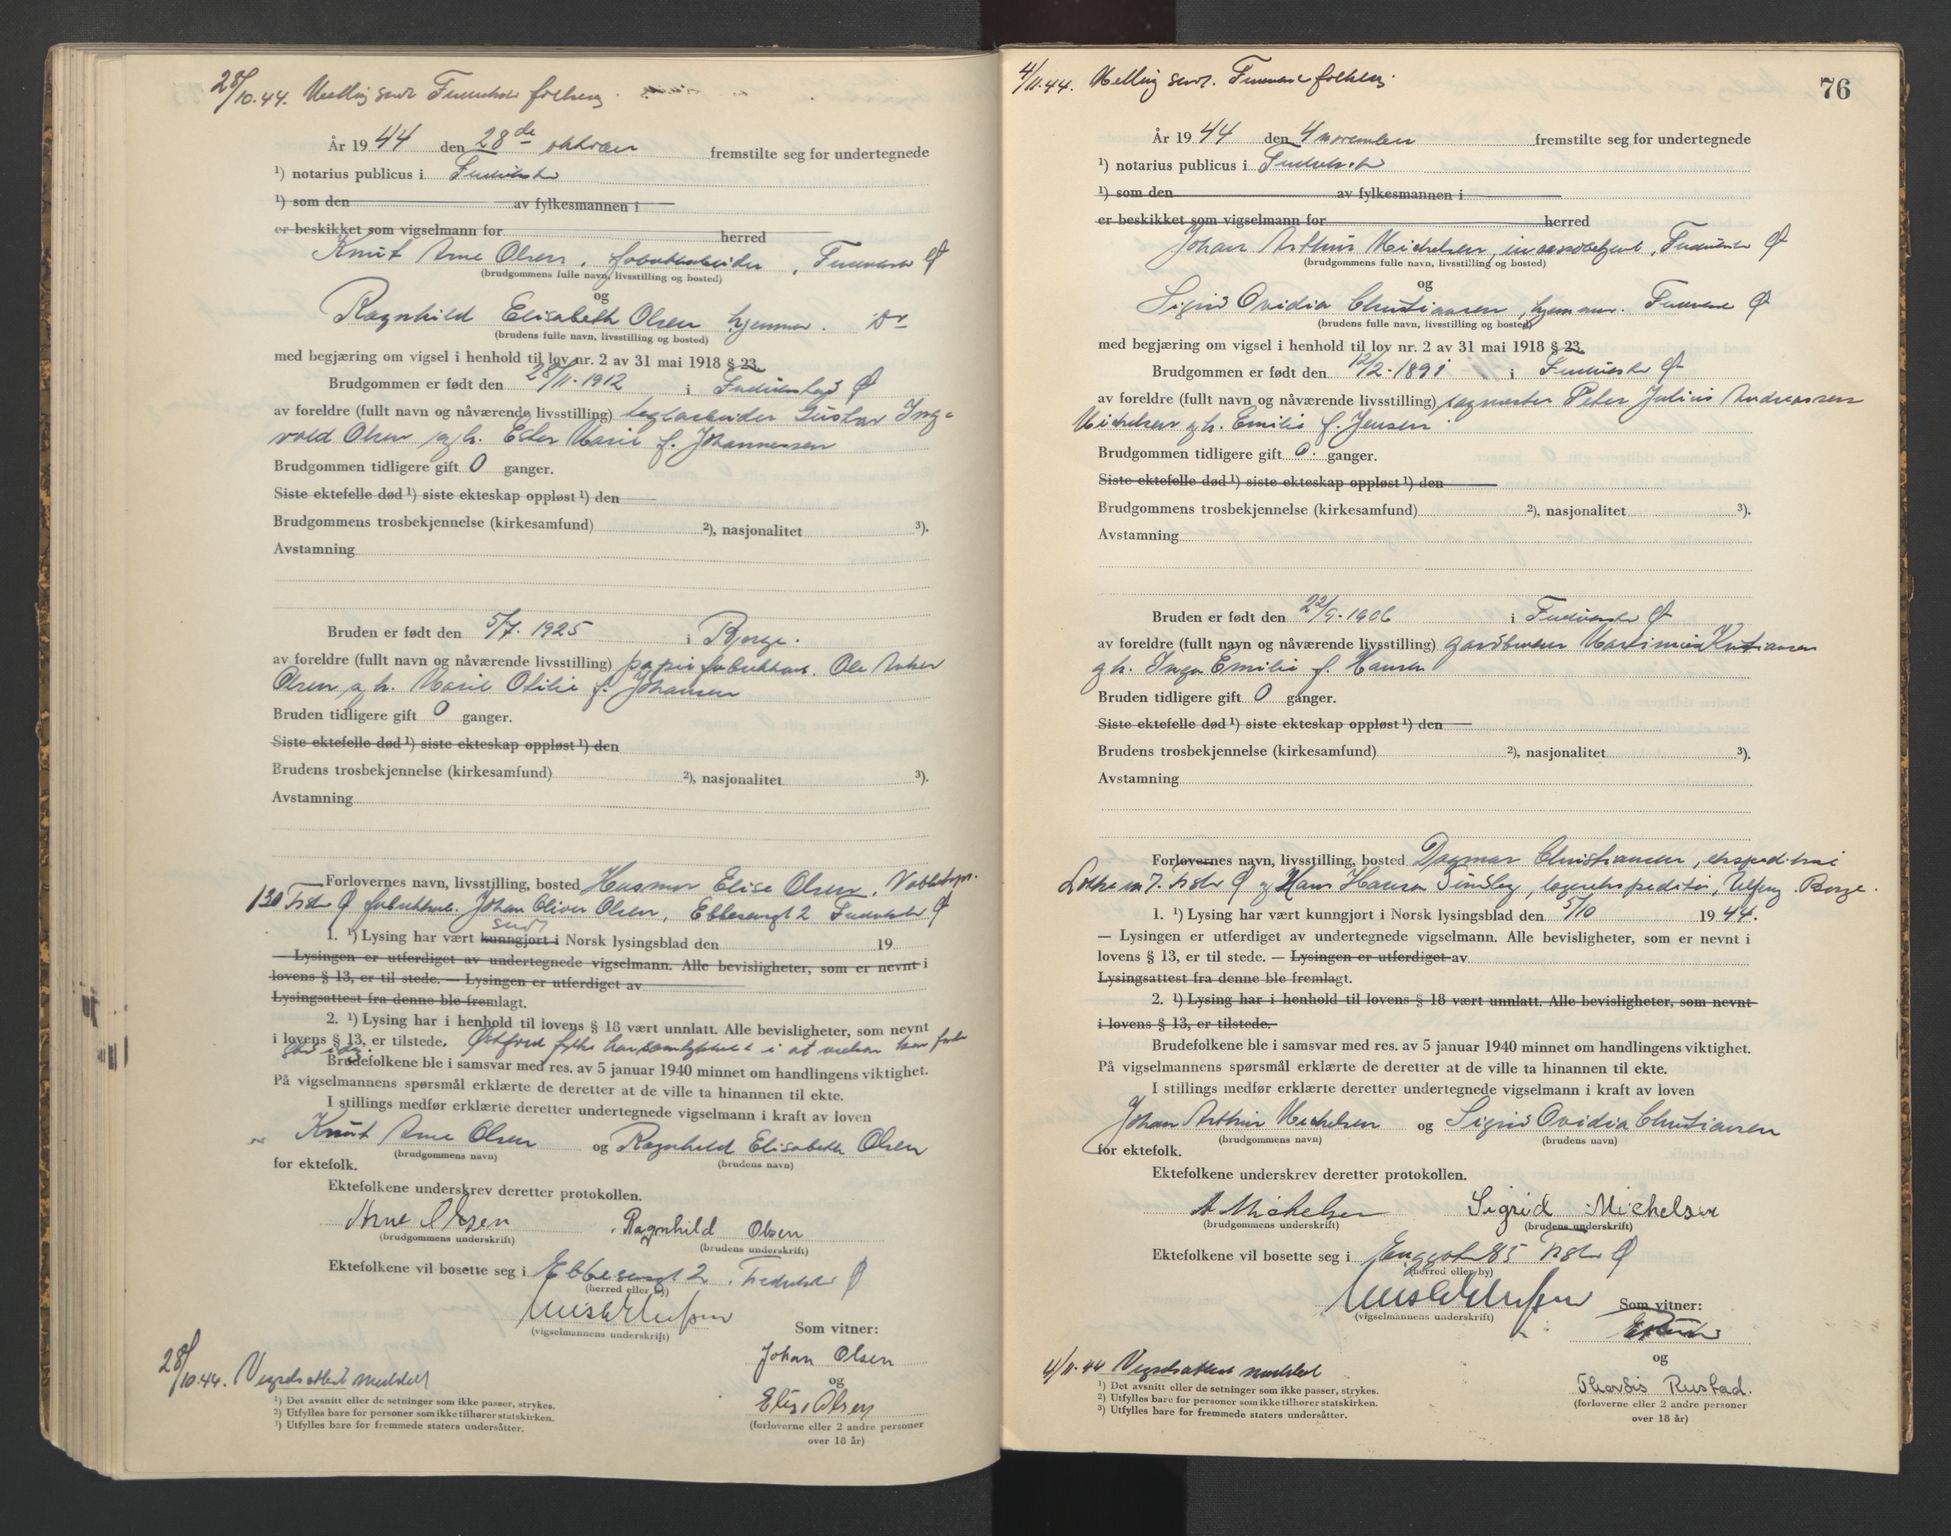 28/10.44. Melding sendt Fredrikstad folkereg.
År 1944 den 28de oktober fremstilte seg for undertegnede
¹) notarius publicus i Fredrikstad
¹) som den av fylkesmannen i
er beskikket som vigselmann for herred
Knut Arne Olsen, fabrikkarbeider, Fredrikstad Ø
(brudgommens fulle navn, livsstilling og bosted)
og
Ragnhild Elisabeth Olsen hjemmev. do
(brudens fulle navn, livsstilling og bosted)
med begjæring om vigsel i henhold til lov nr. 2 av 31 mai 1918 § 23.
Brudgommen er født den 28/11-1912 i Fredrikstad Ø
av foreldre (fullt navn og nåværende livsstilling) teglarbeider Gustav Ing-
vald Olsen og h. Ester Marie f. Johannessen
Brudgommen tidligere gift 0 ganger.
Siste ektefelle død ¹) siste ekteskap oppløst ¹) den
Brudgommens trosbekjennelse (kirkesamfund) ²), nasjonalitet ³).
Avstamning
Bruden er født den 5/7-1925 i Borge.
av foreldre (fullt navn og nåværende livsstilling) papirfabrikkarb. Ole Anker
Olsen og h. Marie Otilie f. Johansen
Bruden tidligere gift 0 ganger.
Siste ektefelle død ¹) siste ekteskap oppløst ¹) den
Brudens trosbekjennelse (kirkesamfund) ²), nasjonalitet ³).
Avstamning
Forlovernes navn, livsstilling, bosted Husmor Elise Olsen,
130 Frstr Ø fabrikkarb. Johan Oliver Olsen, Ebbesensgt 2 Fredrikstad Ø
sendt
1. ¹) Lysing har vært kunngjort i Norsk lysingsblad den 19
— Lysingen er utferdiget av undertegnede vigselmann. Alle bevisligheter, som er nevnt i
lovens § 13, er til stede. — Lysingen er utferdiget av
Lysingsattest fra denne ble fremlagt.
2. ¹) Lysing har i henhold til lovens § 18 vært unnlatt. Alle bevisligheter, som nevnt
i lovens § 13, er tilstede. Østfold fylke har samtykket i at vielsen kan fore-
gå i dag.
Brudefolkene ble i samsvar med res. av 5 januar 1940 minnet om handlingens viktighet.
På vigselmannens spørsmål erklærte de deretter at de ville ta hinannen til ekte.
I stillings medfør erklærte deretter undertegnede vigselmann i kraft av loven
Knut Arne Olsen og Ragnhild Elisabeth Olsen
(brudgommens navn) (brudens navn)
for ektefolk.
Ektefolkene underskrev deretter protokollen.
Arne Olsen Ragnhild Olsen
(brudgommens underskrift) (brudens underskrift)
Ektefolkene vil bosette seg i Ebbesensgt 2, Fredrikstad Ø
(herred eller by)
(vigselmannens underskrift)
Som vitner:
Johan Olsen
og
Elise Olsen
(forloverne eller 2 andre personer
over 18 år)
28/10.44. Vigselsattest meddelt
¹) Det avsnitt eller de setninger som ikke passer, strykes.
²) Utfylles bare for personer som ikke tilhører statskirken.
³) Utfylles bare for fremmede staters undersåtter.
4/11.44. Melding sendt. Fredrikstad folkereg.
76
År 1944 den 4 november fremstilte seg for undertegnede
¹) notarius publicus i Fredrikstad
¹) som den av fylkesmannen i
er beskikket som vigselmann for herred
Johan Arthur Michelsen, incassobetjent, Fredrikstad Ø
(brudgommens fulle navn, livsstilling og bosted)
og
Sigrid Ovidia Christiansen, hjemmev. Fredrikstad Ø
(brudens fulle navn, livsstilling og bosted)
med begjæring om vigsel i henhold til lov nr. 2 av 31 mai 1918 § 23.
Brudgommen er født den 12/2-1891 i Fredrikstad Ø
av foreldre (fullt navn og nåværende livsstilling) sagmester Peter Julius Andreassen
Michelsen og h. Emilie f. Jensen
Brudgommen tidligere gift 0 ganger.
Siste ektefelle død ¹) siste ekteskap oppløst ¹) den
Brudgommens trosbekjennelse (kirkesamfund) ²), nasjonalitet ³).
Avstamning
Bruden er født den 22/9-1906 i Fredrikstad Ø
av foreldre (fullt navn og nåværende livsstilling) gardbruker Martinius Kristiansen
og h. Inga Emilie f. Hansen
Bruden tidligere gift 0 ganger.
Siste ektefelle død ¹) siste ekteskap oppløst ¹) den
Brudens trosbekjennelse (kirkesamfund) ²), nasjonalitet ³).
Avstamning
Forlovernes navn, livsstilling, bosted Dagmar Christiansen, ekspeditrise
7. Frstr Ø og Hans Hansen Tindlug, lagerekspeditør, Borge.
1. ¹) Lysing har vært kunngjort i Norsk lysingsblad den 5/10 1944.
— Lysingen er utferdiget av undertegnede vigselmann. Alle bevisligheter, som er nevnt i
lovens § 13, er til stede. — Lysingen er utferdiget av
Lysingsattest fra denne ble fremlagt.
2. ¹) Lysing har i henhold til lovens § 18 vært unnlatt. Alle bevisligheter, som nevnt
i lovens § 13, er tilstede.
Brudefolkene ble i samsvar med res. av 5 januar 1940 minnet om handlingens viktighet.
På vigselmannens spørsmål erklærte de deretter at de ville ta hinannen til ekte.
I stillings medfør erklærte deretter undertegnede vigselmann i kraft av loven
Johan Arthur Michelsen og Sigrid Ovidia Christiansen
(brudgommens navn) (brudens navn)
for ektefolk.
Ektefolkene underskrev deretter protokollen.
A Michelsen Sigrid Michelsen
(brudgommens underskrift) (brudens underskrift)
Ektefolkene vil bosette seg i 85 Frstr Ø
(herred eller by)
(vigselmannens underskrift)
Som vitner:
og
Thordis Rustad.
(forloverne eller 2 andre personer
over 18 år)
4/11.44 Vigselsattest meddelt
¹) Det avsnitt eller de setninger som ikke passer, strykes.
²) Utfylles bare for personer som ikke tilhører statskirken.
³) Utfylles bare for fremmede staters undersåtter.